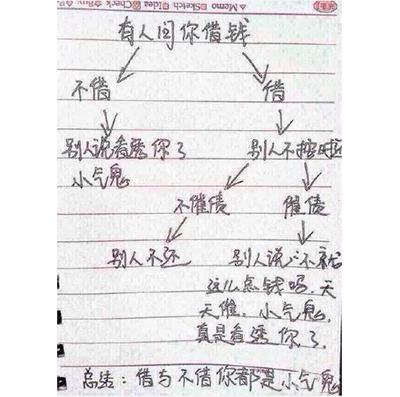 Memo Sketch Idea Check Buy
有人问你借钱
不借 借
别人说看透你了 别人不按时
小气鬼
不催债 催债
别人不还 别人说:不就
这么点钱吗,天
天催,小气鬼,
真是看透你了.
总结:借与不借你都是小气鬼